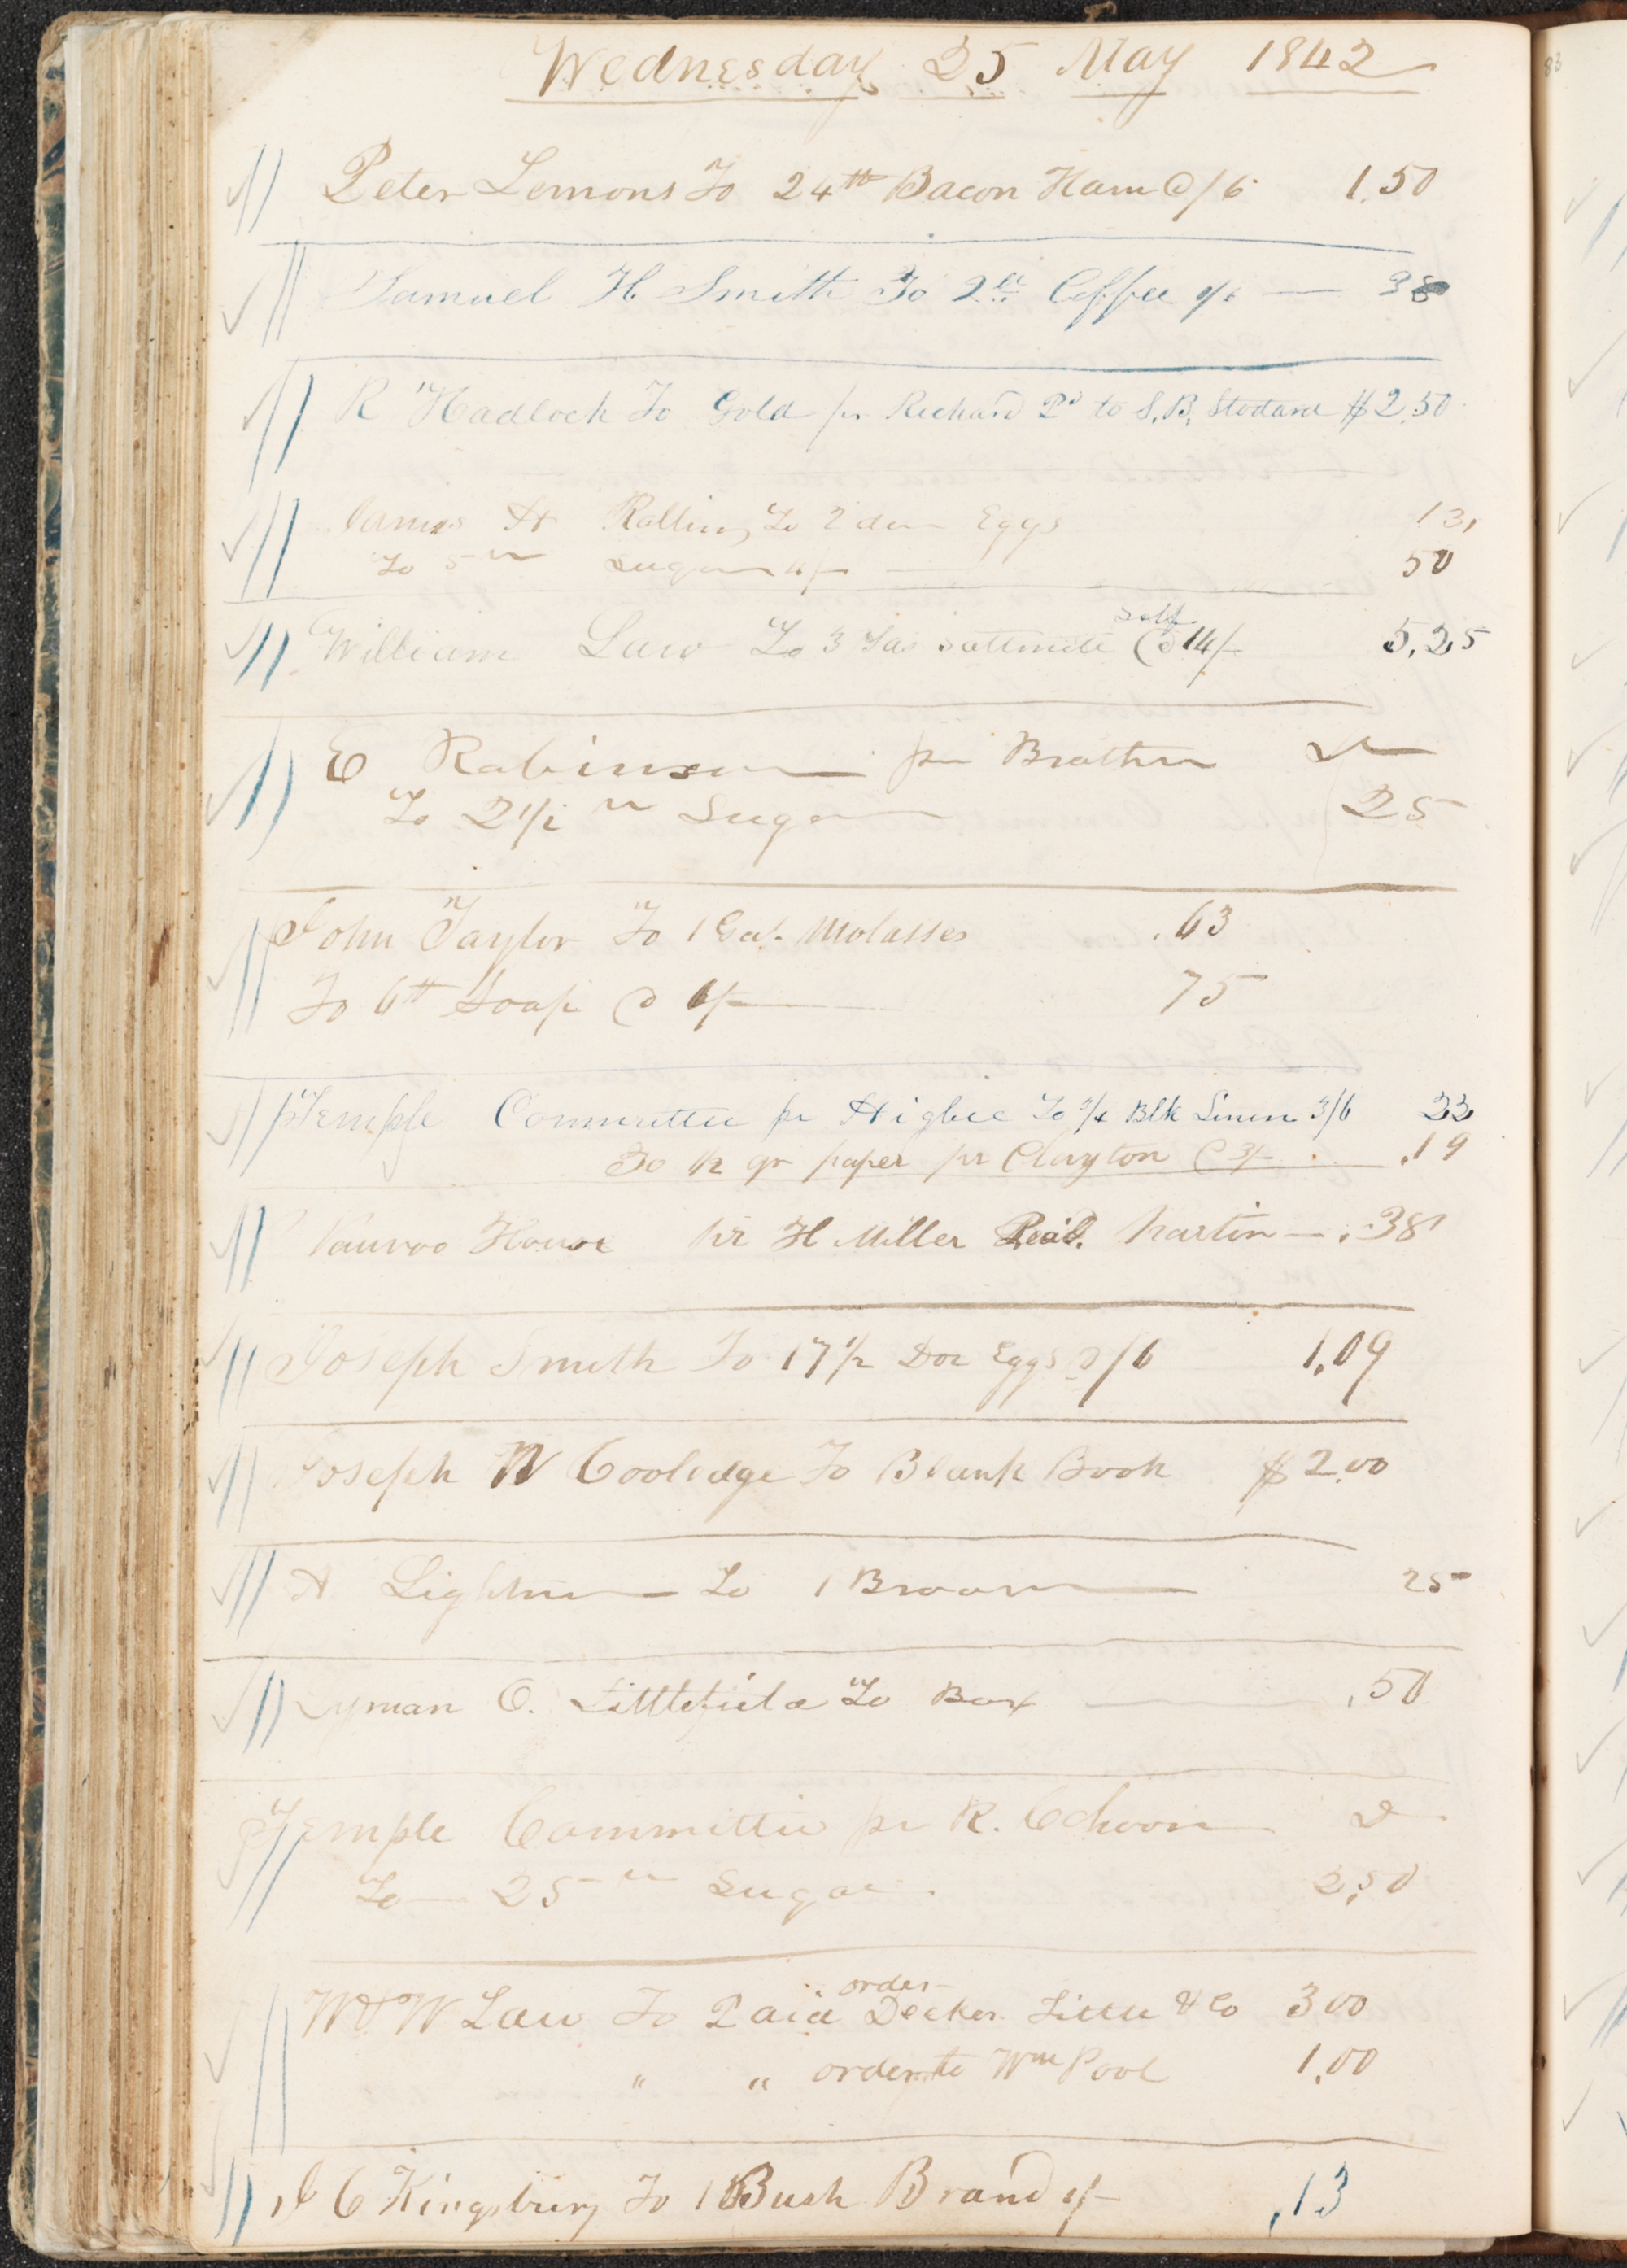 Wednesday 25 May 1842
Peter Lemons To 24 tt Bacon Ham @ /6 1.50
Samuel H Smith To 2 lb Coffee 1/6 — 38
R Hadlock To Gold pr Richard Pd to S. B. Stodard $2.50
James H Rollins To 2 dozn Eggs 13,
To 5 Sugar 50
Self
William Law To 3 Yds sattinett @ 14/– 5.25
E Robinson pr Brother Dr
To 2 1/2 Sugar 25
John Taylor To 1 Gal. Molasses .63
To 6 tt Soap @ 1/– 75
Temple Committee pr Higbee To 3/4 Blk Linen 3/6 33
To 1/2 qr paper pr Clayton @ 3/– .19
Nauvoo House pr H Miller Paid. Martin — .38
Joseph Smith To 17 1/2 Doz Eggs @ /6 1.09
Joseph W Coolidge To Blank Book $2.00
A Lightner To 1 Broom 25
Lyman O. Littlefield To Box .50
Temple Committee pr R. Cohoon Dr
To 25 Sugar 2.50
order
W & W Law To Paid Decker Little & Co 3 00
" " order to Wm Pool 1.00
J C Kingsbury To 1 Bush Brand 1/– .13
83